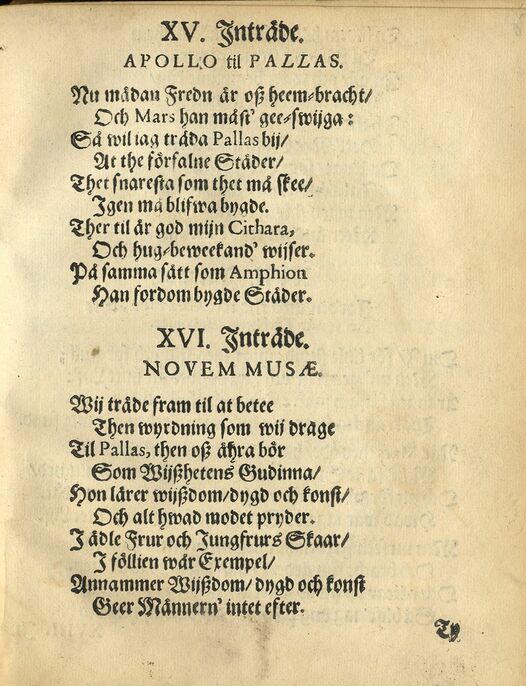 XV. Inträde.
APOLLO til PALLAS.
Nu mädan Fredn är oß heem-bracht/
Och Mars han måst' gee-swijga:
Så wil iag träda Pallas bij/
At the förfalne Städer/
Thet snaresta som thet må skee/
Igen må blifwa bygde.
Ther til är god mijn Cithara,
Och hug-beweekand' wijser.
På samma sätt som Amphion
Han fordom bygde Städer.
XVI. Inträde.
NOVEM MUSÆ.
Wij träde fram til at betee
Then wyrdning som wij drage
Til Pallas, then oß ähra bör
Som Wijßhetens Gudinna/
Hon lärer wijßdom/dygd och konst/
Och alt hwad modet pryder.
I ädle Frur och Jungfrurs Skaar/
I föllien wår Exempel/
Annammer Wijßdom/dygd och konst
Geer Männern' intet efter.
Ty